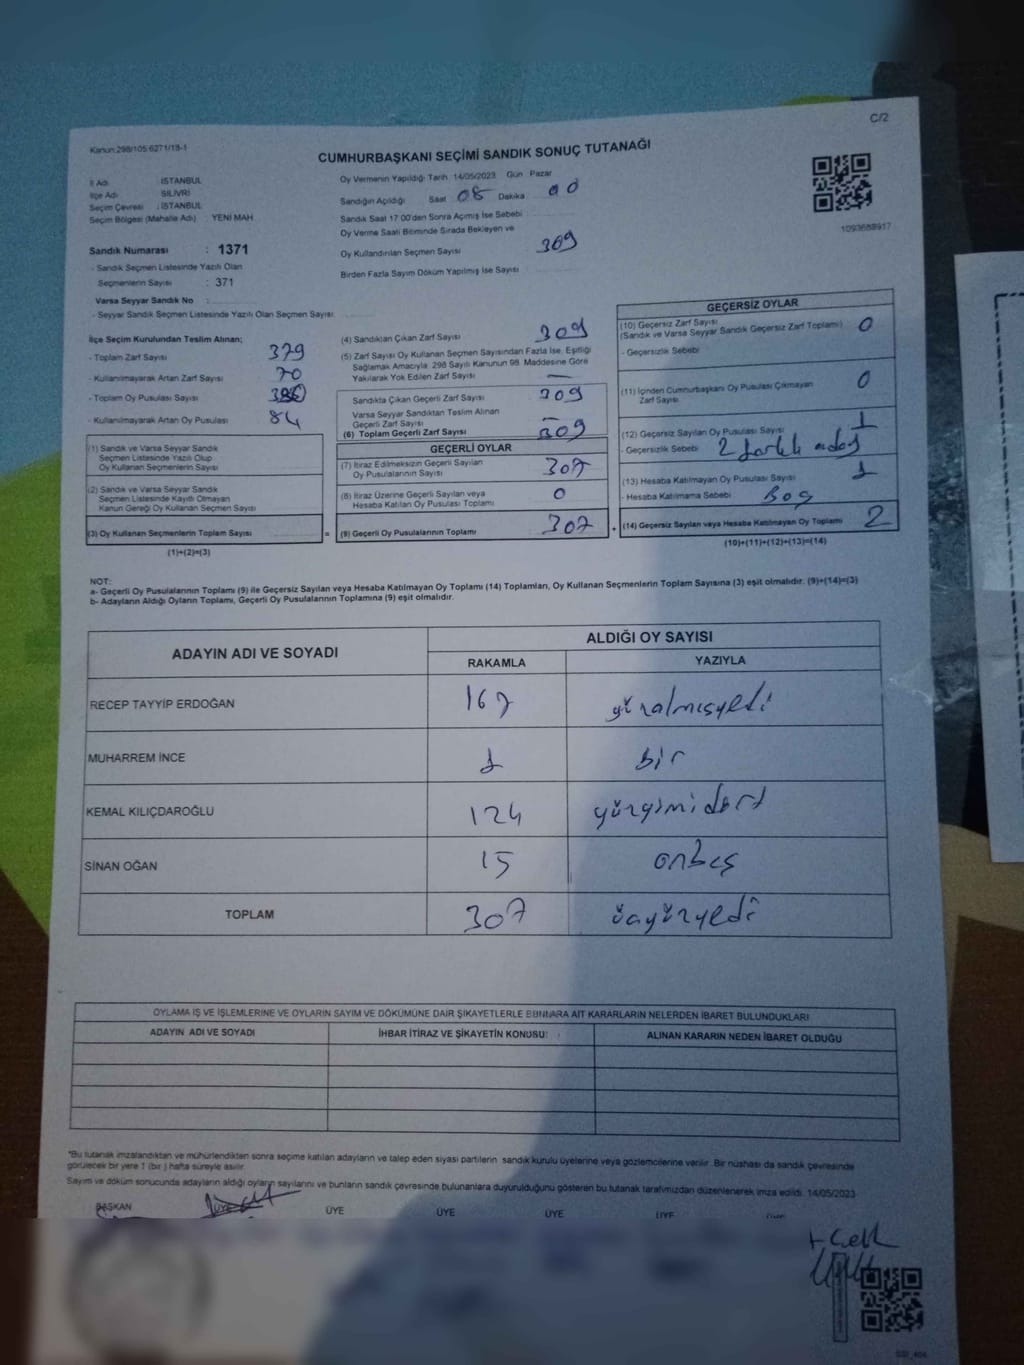 C/2
Kanun:298/105:6271/18-1
CUMHURBAŞKANI SEÇİMİ SANDIK SONUÇ TUTANAĞI
İl Adı : İSTANBUL
İlçe Adı : SİLİVRİ
Seçim Çevresi : İSTANBUL
Seçim Bölgesi (Mahalle Adı) YENİ MAH
Sandık Numarası : 1371
- Sandık Seçmen Listesinde Yazılı Olan
Seçmenlerin Sayısı : 371
Varsa Seyyar Sandık No :
- Seyyar Sandık Seçmen Listesinde Yazılı Olan Seçmen Sayısı
Oy Vermenin Yapıldığı Tarih 14/05/2023 Gün Pazar
Sandığın Açıldığı Saat 08 Dakika 00
Sandık Saat 17:00'dan Sonra Açımış İse Sebebi
Oy Verme Saati Bitiminde Sırada Bekleyen ve
Oy Kullandırılan Seçmen Sayısı 309
Birden Fazla Sayım Döküm Yapılmış İse Sayısı
1093688917
İlçe Seçim Kurulundan Teslim Alınan;
- Toplam Zarf Sayısı 379
- Kullanılmayarak Artan Zarf Sayısı 70
- Toplam Oy Pusulası Sayısı
- Kullanılmayarak Artan Oy Pusulası 84
(1) Sandık ve Varsa Seyyar Sandık
Seçmen Listesinde Yazılı Olup
Oy Kullanan Seçmenlerin Sayısı
(2) Sandık ve Varsa Seyyar Sandık
Seçmen Listesinde Kayıtlı Olmayan
Kanun Gereği Oy Kullanan Seçmen Sayısı
(3) Oy Kullanan Seçmenlerin Toplam Sayısı =
(1)+(2)=(3)
(4) Sandıktan Çıkan Zarf Sayısı 309
(5) Zarf Sayısı Oy Kullanan Seçmen Sayısından Fazla İse, Eşitliği
Sağlamak Amacıyla 298 Sayılı Kanunun 98. Maddesine Göre
Yakılarak Yok Edilen Zarf Sayısı —
Sandıkta Çıkan Geçerli Zarf Sayısı 309
Varsa Seyyar Sandıktan Teslim Alınan
Geçerli Zarf Sayısı —
(6) Toplam Geçerli Zarf Sayısı 309
GEÇERLİ OYLAR
(7) İtiraz Edilmeksizin Geçerli Sayılan
Oy Pusulalarının Sayısı 307
(8) İtiraz Üzerine Geçerli Sayılan veya
Hesaba Katılan Oy Pusulası Toplamı 0
(9) Geçerli Oy Pusulalarının Toplamı 307 +
GEÇERSİZ OYLAR
(10) Geçersiz Zarf Sayısı
(Sandık ve Varsa Seyyar Sandık Geçersiz Zarf Toplamı) 0
- Geçersizlik Sebebi
(11) İçinden Cumhurbaşkanı Oy Pusulası Çıkmayan
Zarf Sayısı 0
(12) Geçersiz Sayılan Oy Pusulası Sayısı 1
- Geçersizlik Sebebi 2 farklı aday
(13) Hesaba Katılmayan Oy Pusulası Sayısı 1
- Hesaba Katılmama Sebebi Boş
(14) Geçersiz Sayılan veya Hesaba Katılmayan Oy Toplamı 2
(10)+(11)+(12)+(13)=(14)
NOT:
a- Geçerli Oy Pusulalarının Toplamı (9) ile Geçersiz Sayılan veya Hesaba Katılmayan Oy Toplamı (14) Toplamları, Oy Kullanan Seçmenlerin Toplam Sayısına (3) eşit olmalıdır. (9)+(14)=(3)
b- Adayların Aldığı Oyların Toplamı, Geçerli Oy Pusulalarının Toplamına (9) eşit olmalıdır.
ADAYIN ADI VE SOYADI ALDIĞI OY SAYISI
RAKAMLA YAZIYLA
RECEP TAYYİP ERDOĞAN 167 yüzalmışyedi
MUHARREM İNCE 1 bir
KEMAL KILIÇDAROĞLU 124 yüzyimidört
SİNAN OĞAN 15 onbeş
TOPLAM 307 üçyüzyedi
OYLAMA İŞ VE İŞLEMLERİNE VE OYLARIN SAYIM VE DÖKÜMÜNE DAİR ŞİKAYETLERLE BUNLARA AİT KARARLARIN NELERDEN İBARET BULUNDUKLARI
ADAYIN ADI VE SOYADI İHBAR İTİRAZ VE ŞİKAYETİN KONUSU: ALINAN KARARIN NEDEN İBARET OLDUĞU
"Bu tutanak imzalandıktan ve mühürlendikten sonra seçime katılan adayların ve talep eden siyasi partilerin sandık kurulu üyelerine veya gözlemcilerine verilir. Bir nüshası da sandık çevresinde
görülecek bir yere 1 (bir ) hafta süreyle asılır.
Sayım ve döküm sonucunda adayların aldığı oyların sayılarını ve bunların sandık çevresinde bulunanlara duyurulduğunu gösteren bu tutanak tarafımızdan düzenlenerek imza edildi. 14/05/2023
BAŞKAN ÜYE ÜYE ÜYE ÜYE ÜYE